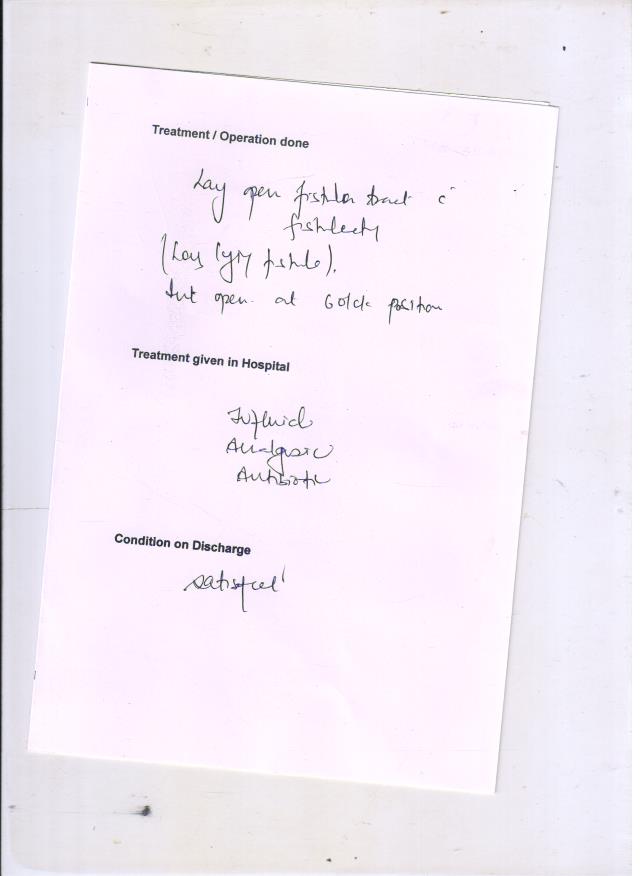 Treatment / Operation done
Lay open fistula tract c̄
fistulecty
(Low lying fistula).
Int open at 6 o'clc position
Treatment given in Hospital
IVfluid
Analgesic
Antibiotic
Condition on Discharge
satisfied